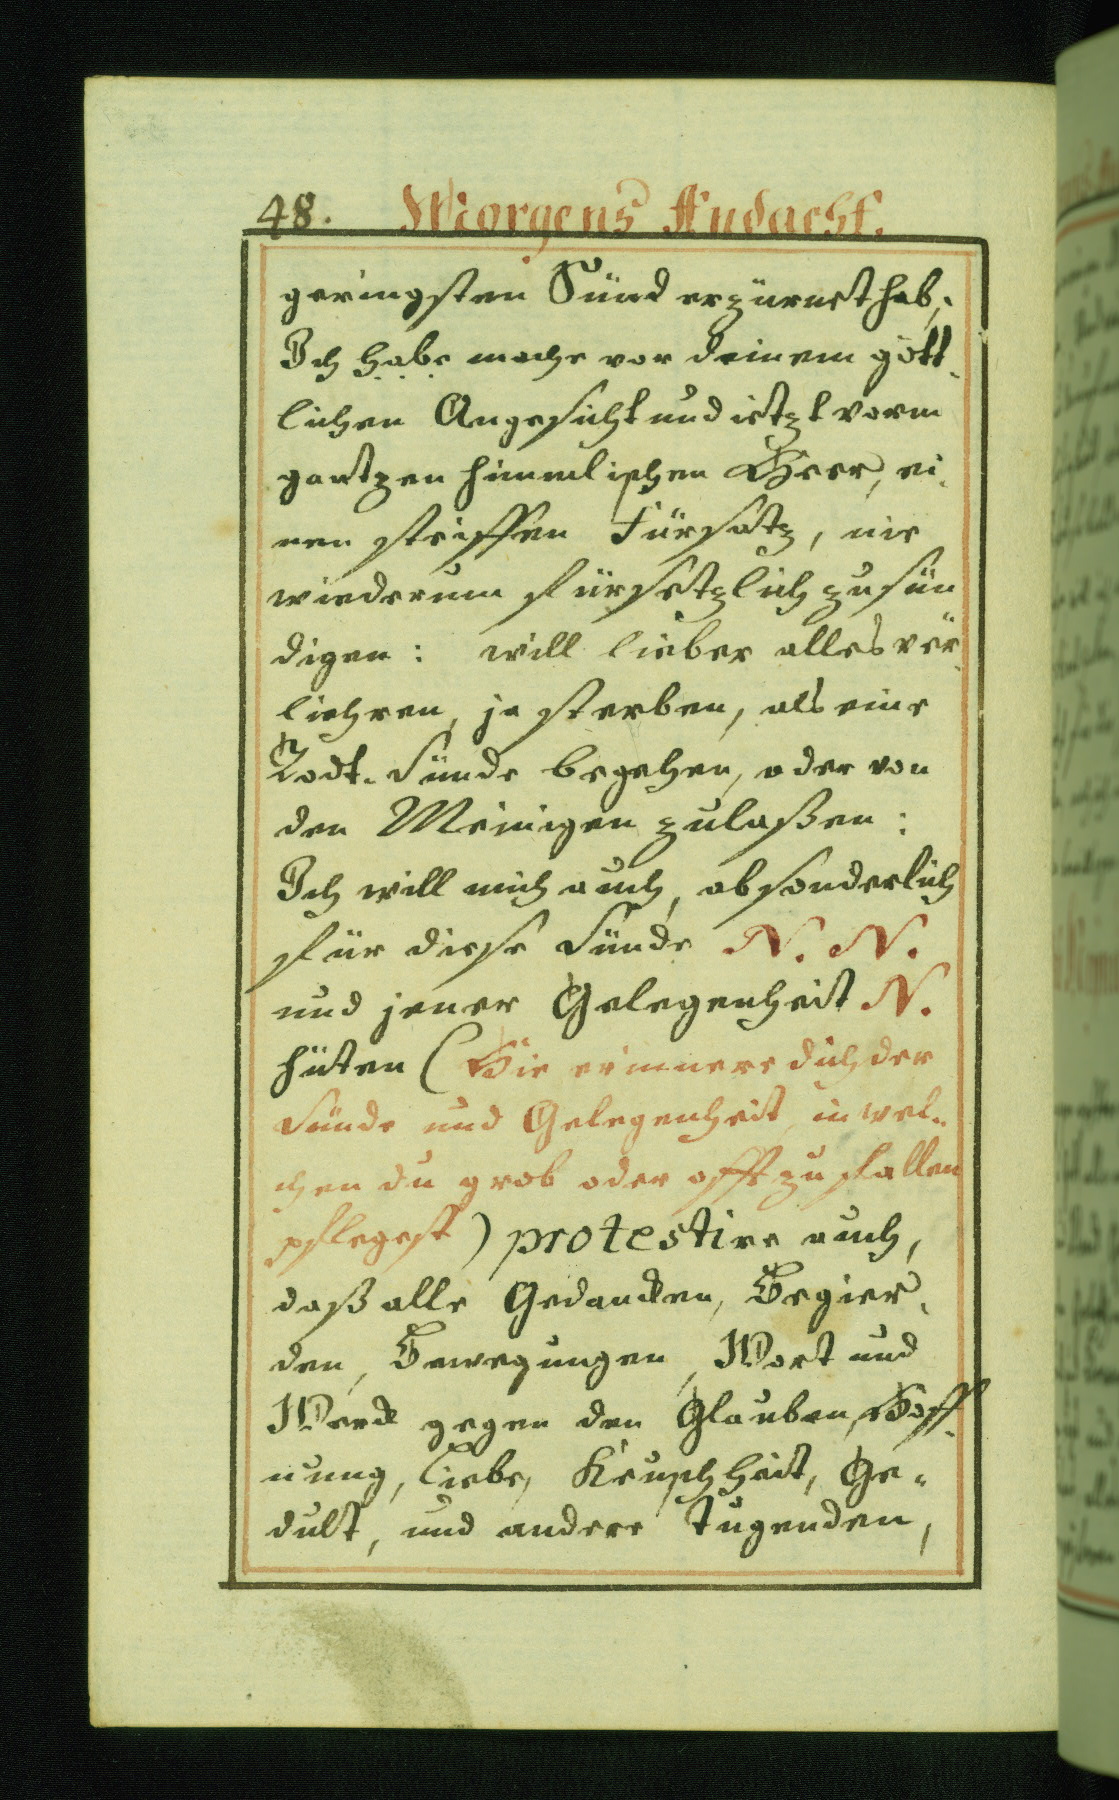 48. Morgens Andacht.
geringsten Sünd erzürnet hab;
Ich habe mache vor deinem gött-
lichen Angesicht und ietzt vorm
gantzen himmlischen Heer, ei-
nen steiffen Fürsatz, nie
wiederum fürsetzlich zu sün
digen: will lieber alles ver-
liehren, ja sterben, als eine
Todt-Sünde begehen, oder von
den Meinigen zulaßen:
Ich will mich auch, absonderlich
für diese Sünde N. N.
und jener Gelegenheit N.
hüten (Hie erinnere dich der
Sünde und Gelegenheit, in wel-
chen du grob oder offt zu fallen
pflegest) protestire auch,
daß alle Gedancken, Begier-
den, Bewegungen, Wort und
Werck gegen den Glauben, Hoff-
nung, Liebe, Keuschheit, Ge-
dult, und andere Tugenden,